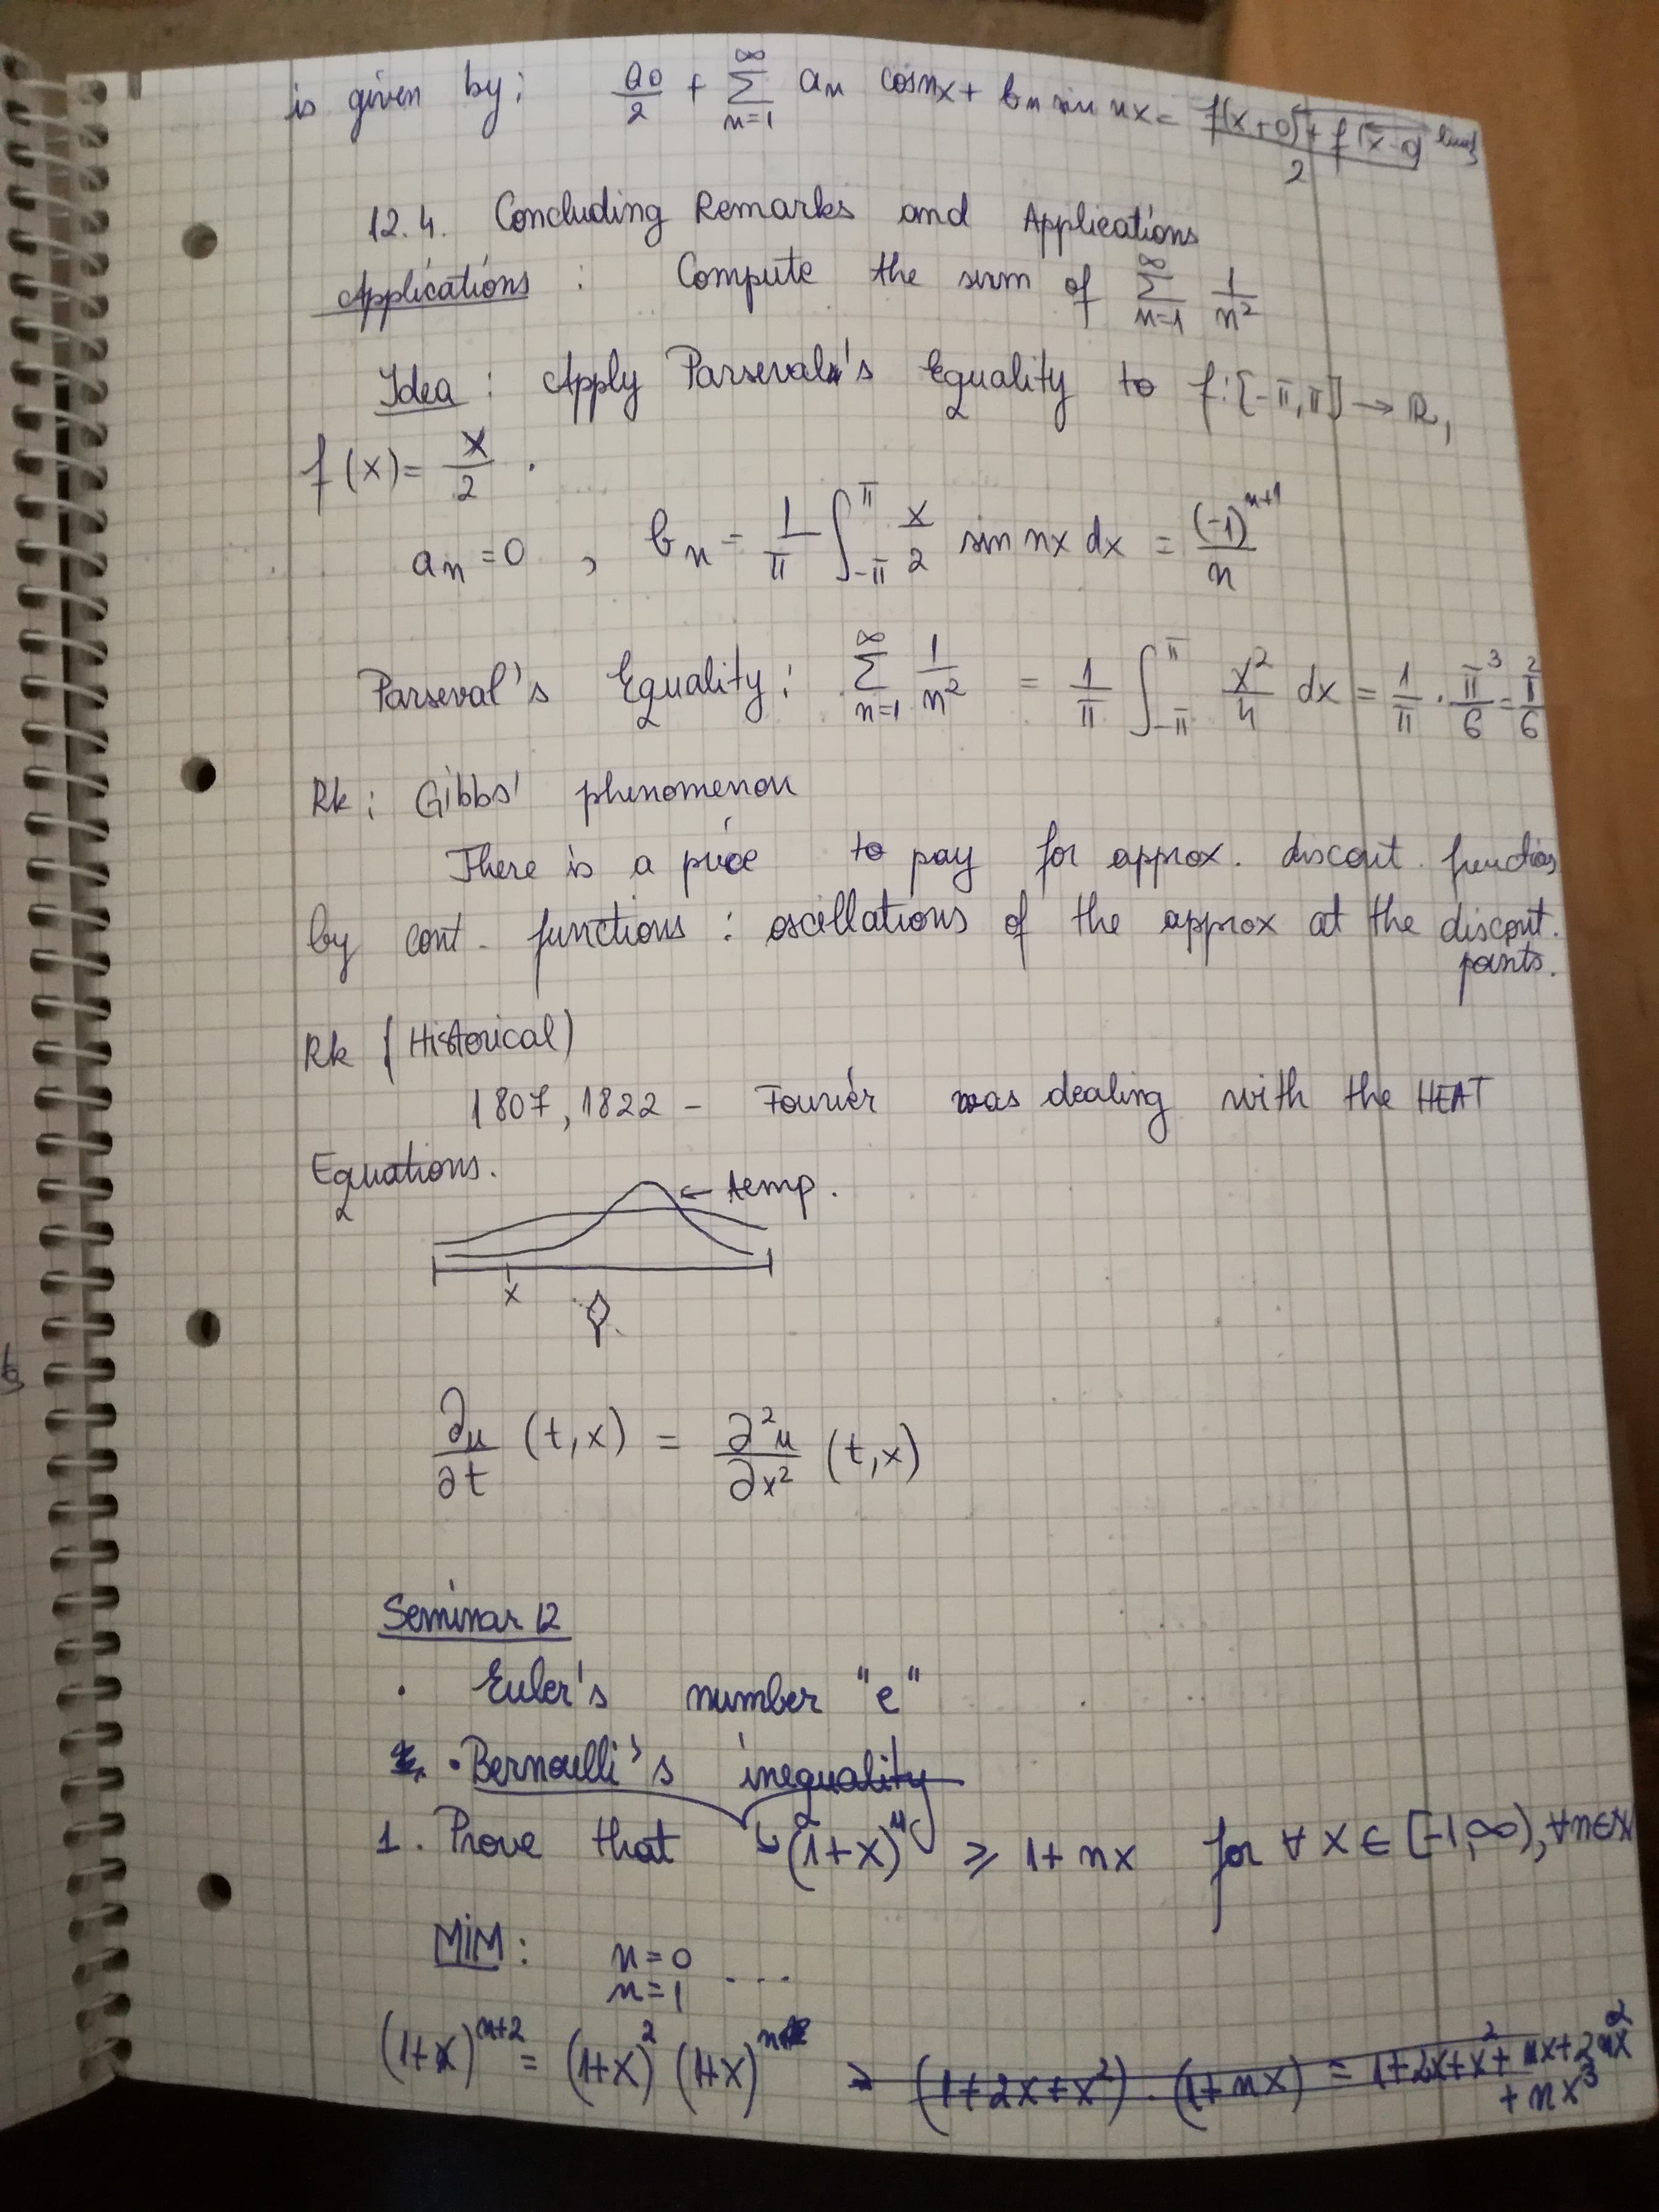 is given by: a0/2 + ∑_{n=1}^{∞} an cosnx + bn sin nx = f(x+0)+f(x-0)/2
12.4. Concluding Remarks and Applications
Applications : Compute the sum of ∑_{n=1}^{∞} 1/n²
Idea : Apply Parseval's Equality to f:[-π,π] → R,
f(x) = x/2 .
an = 0 , bn = 1/π ∫_{-π}^{π} x/2 sin nx dx = (-1)^{n+1}/n
Parseval's Equality: ∑_{n=1}^{∞} 1/n² = 1/π ∫_{-π}^{π} x²/4 dx = 1/π · π³/6 = π²/6
Rk: Gibbs' phenomenon
There is a price to pay for approx. discont. functions
by cont. functions : oscillations of the approx at the discont.
points.
Rk (Historical)
1807, 1822 - Fourier was dealing with the HEAT
Equations.
← temp.
x
∂u/∂t (t,x) = ∂²u/∂x² (t,x)
Seminar 12
• Euler's number "e"
• Bernoulli's inequality
1. Prove that (1+x)^n ⩾ 1+nx for ∀ x ∈ [-1,∞), ∀n∈N
MiM: n=0
n=1 ...
(1+x)^{n+2} = (1+x)² (1+x)^n ⩾ (1+2x+x²)·(1+nx) = 1+2x+x²+nx+2nx²
+nx³